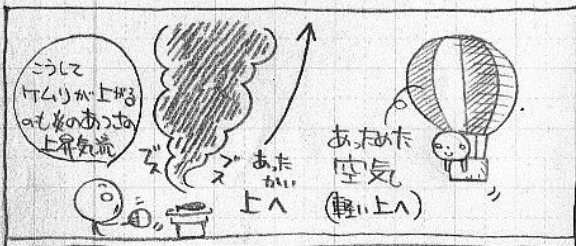 こうして
ケムリが上がる
のも火のあつさの
上昇気流
ブス
ブス
あった
かい
上へ
あっためた
空気
(軽い上へ)